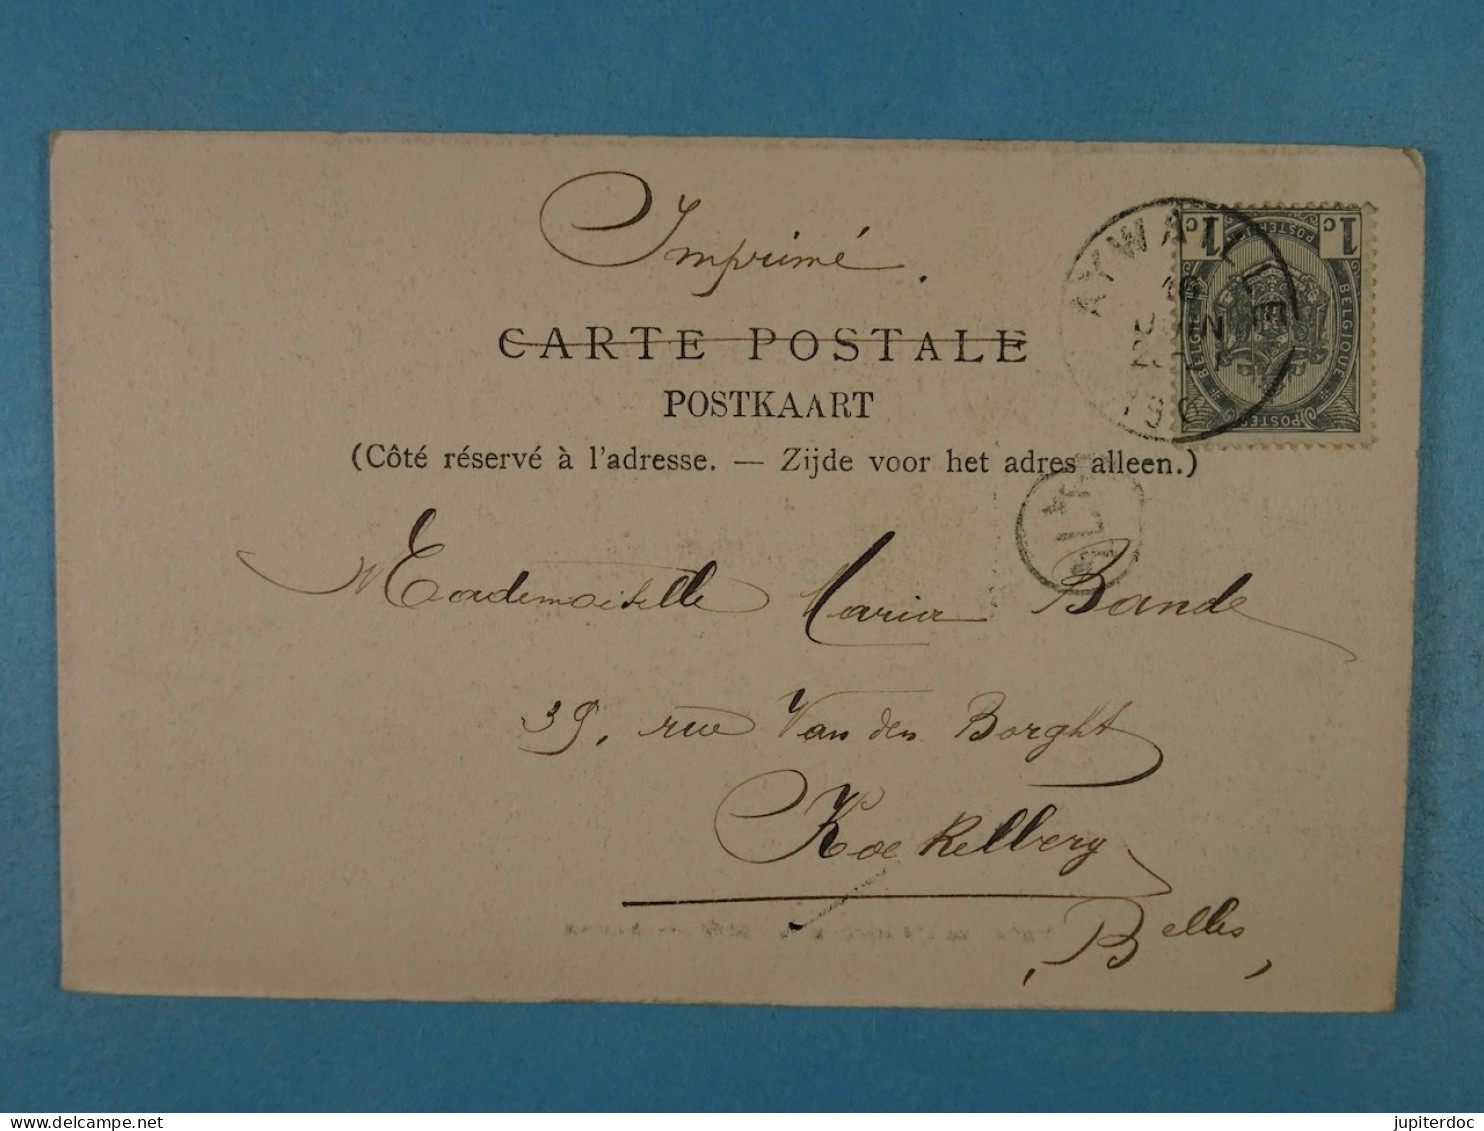 Imprimé.
CARTE POSTALE
POSTKAART
(Côté réservé à l'adresse. — Zijde voor het adres alleen.)
AYWAILLE
16
JUIN
1c 1c
BELGIQUE
POSTES
Mademoiselle Maria Bande
39, rue Van den Borght
Koekelberg
(Belles)
jupiterdoc